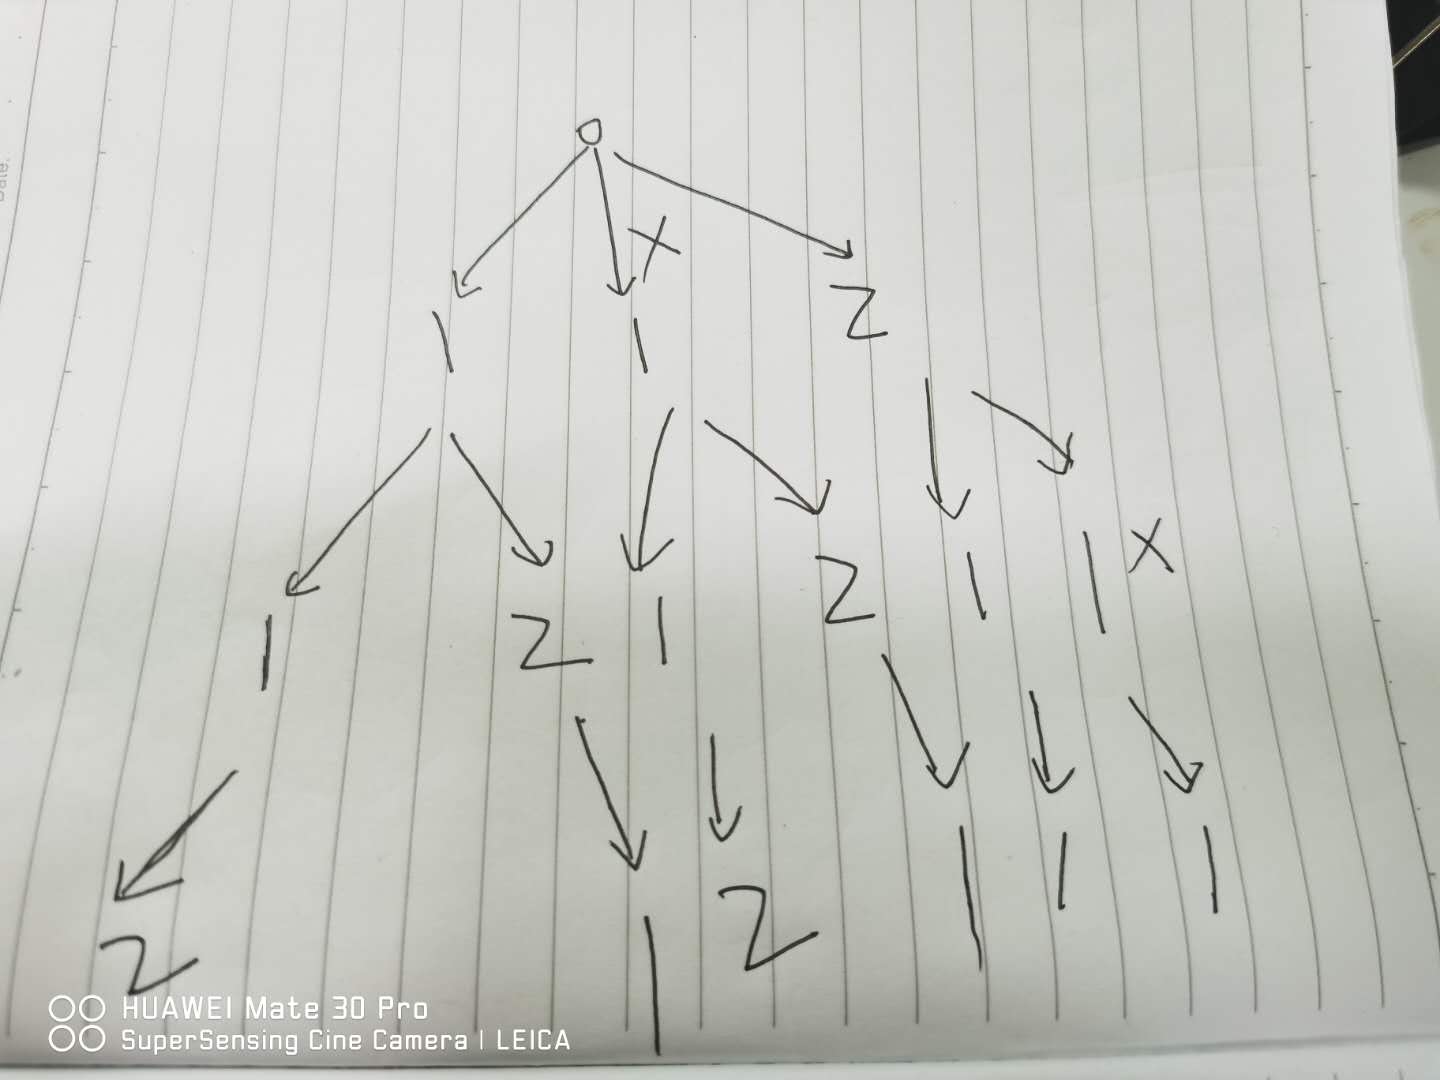 0
X
1 1 2
1 2 1 2 1 1 X
2 1 2 1 1 1
Date:
HUAWEI Mate 30 Pro
SuperSensing Cine Camera | LEICA